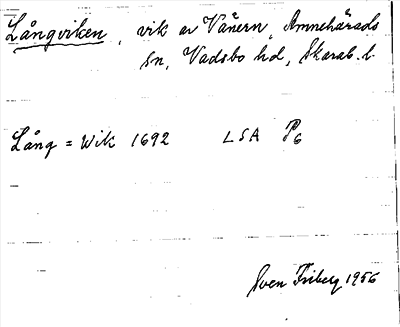 Långviken, vik av Vänern, Amnehärads
sn, Vadsbo hd, Skarab. l.
Lång = Wik 1692 LSA P6
Sven Friberg 1956